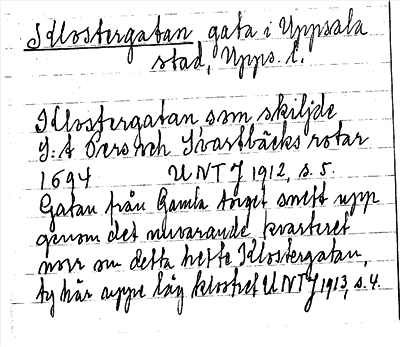 Klostergatan gata i Uppsala
stad, Upps. l.
Klostergatan som skiljde
S:t Pers och Svartbäcks rotar
1694 UNTJ 1912, s. 5.
Gatan från Gamla torget snett upp
genom det nuvarande kvarteret
norr om detta hette Klostergatan,
ty här uppe låg klostret UNTJ 1913, s. 4.